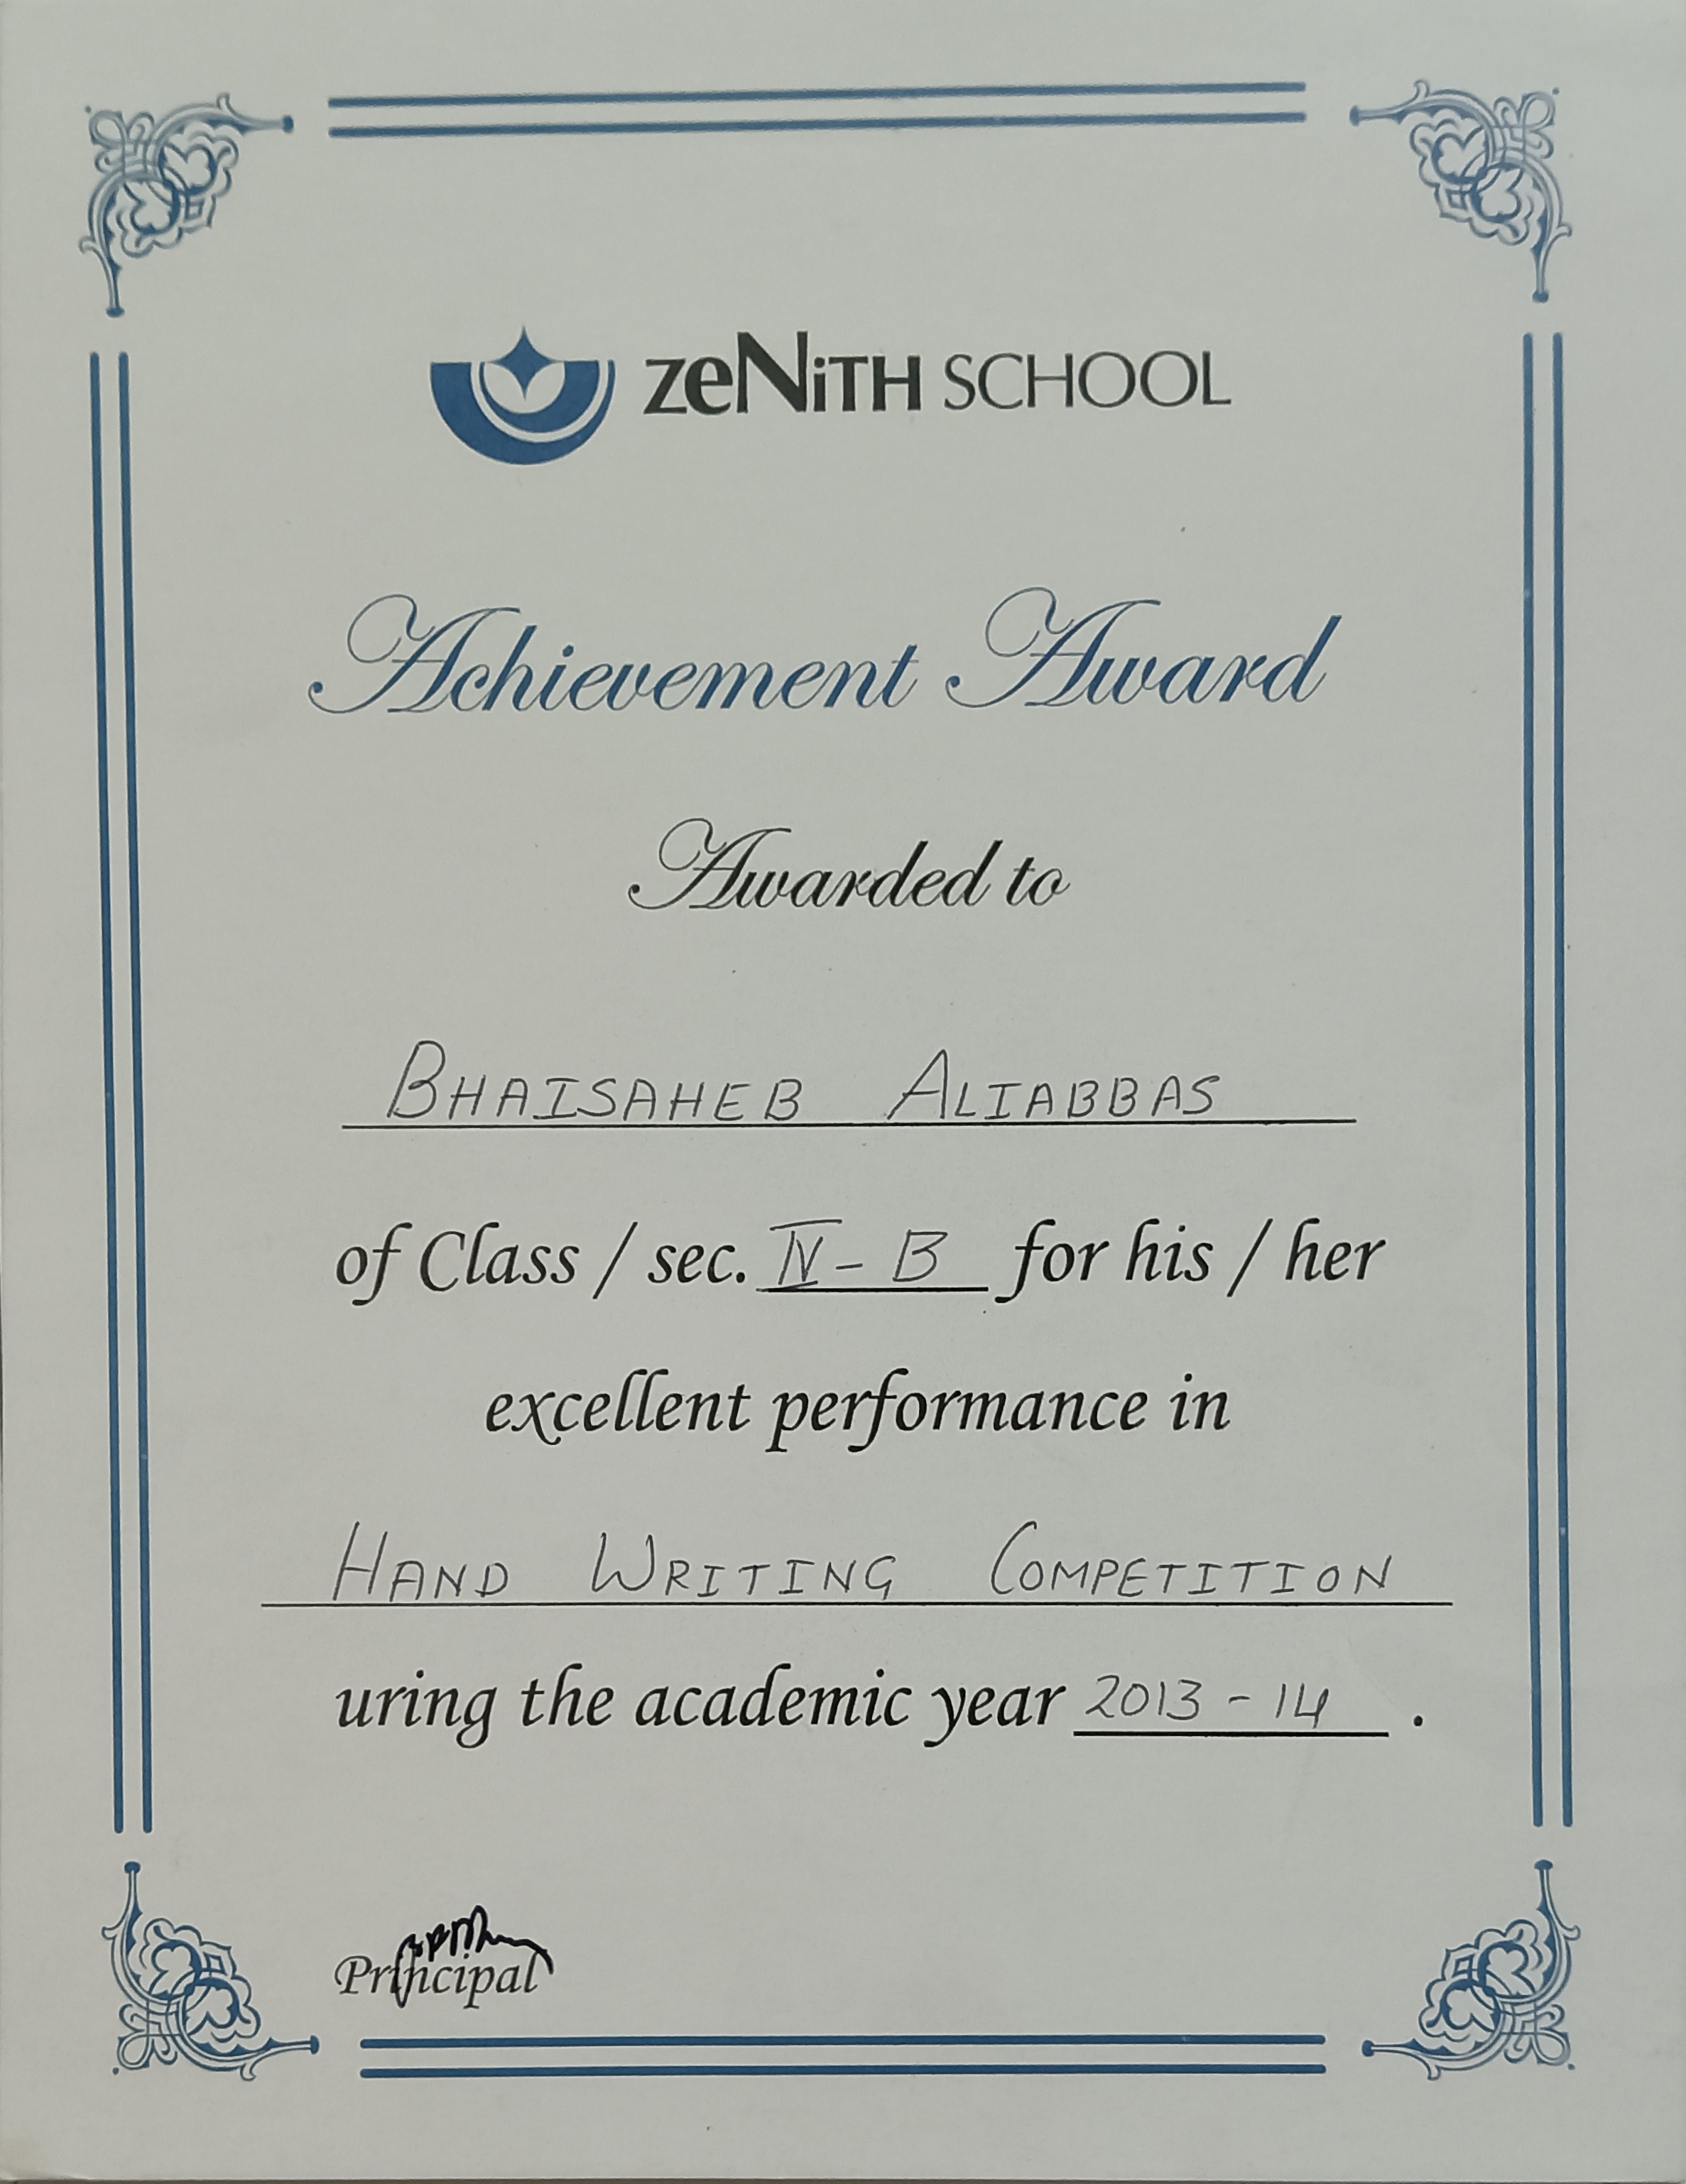 zeNiTH SCHOOL
Achievement Award
Awarded to
BHAISAHEB ALIABBAS
of Class / sec. IV - B for his / her
excellent performance in
HAND WRITING COMPETITION
uring the academic year 2013 - 14 .
Principal